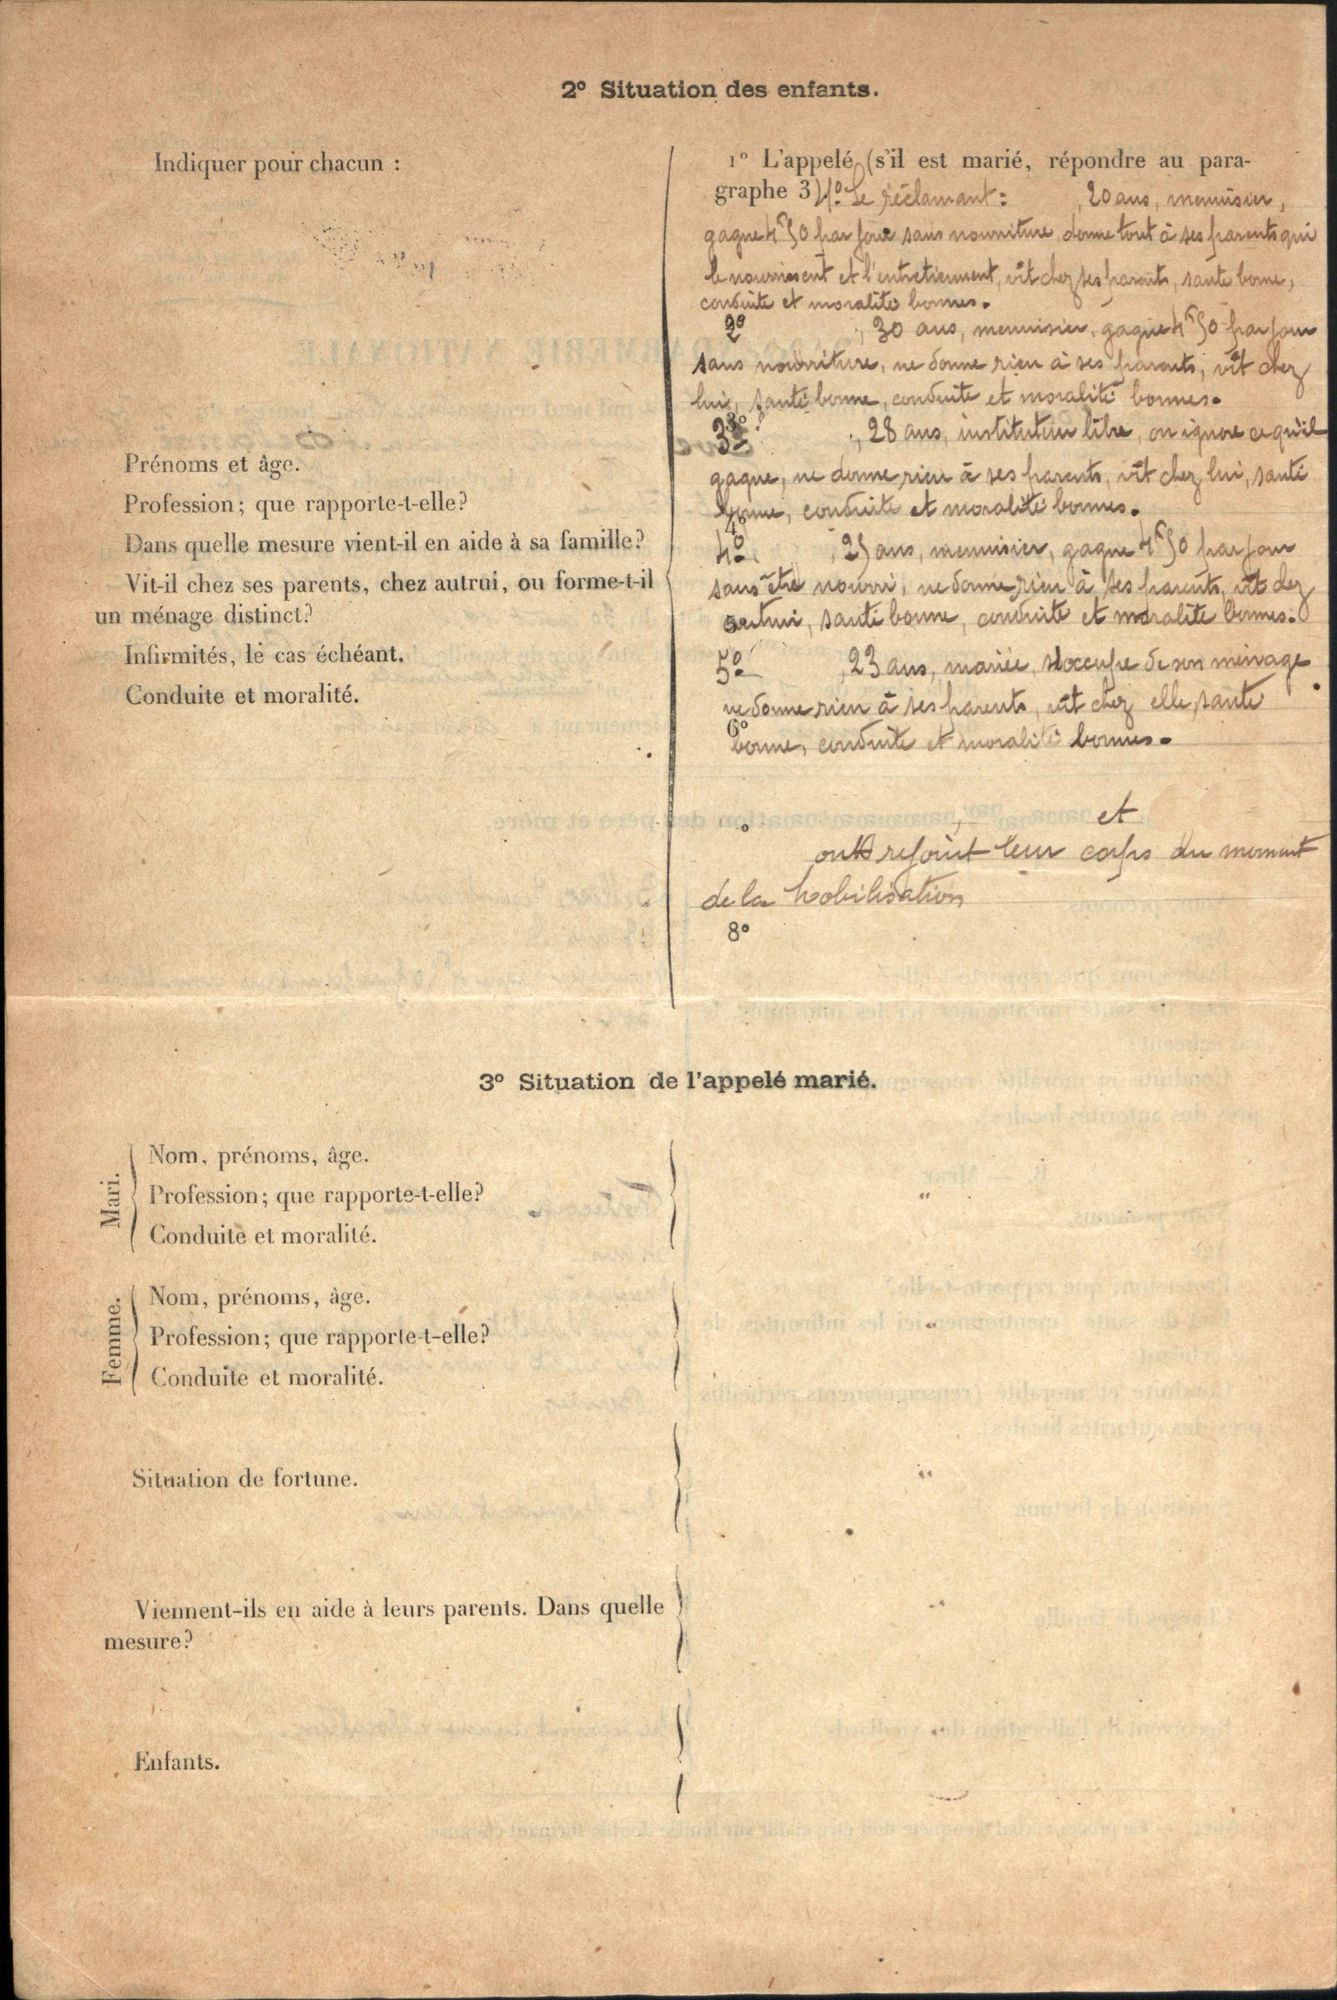 2° Situation des enfants.
Indiquer pour chacun :
Prénoms et âge.
Profession; que rapporte-t-elle?
Dans quelle mesure vient-il en aide à sa famille?
Vit-il chez ses parents, chez autrui, ou forme-t-il
un ménage distinct?
Infirmités, le cas échéant.
Conduite et moralité.
1° L'appelé (s'il est marié, répondre au para-
graphe 3) 1° Le réclamant : , 20 ans, menuisier,
gagne 4f50 par jour sans nourriture, donne tout à ses parents qui
le nourrissent et l'entretiennent, vit chez ses parents, santé bonne,
conduite et moralité bonnes.
2° , 30 ans, menuisier, gagne 4f50 par jour
sans nourriture, ne donne rien à ses parents, vit chez
lui, santé bonne, conduite et moralité bonnes.
3° , 28 ans, instituteur libre, on ignore ce qu'il
gagne, ne donne rien à ses parents, vit chez lui, santé
bonne, conduite et moralité bonnes.
4° , 25 ans, menuisier, gagne 4f50 par jour
sans être nourri, ne donne rien à ses parents, vit chez
autrui, santé bonne, conduite et moralité bonnes.
5° , 23 ans, mariée, s'occupe de son ménage
ne donne rien à ses parents, vit chez elle, santé
6°
bonne, conduite et moralité bonnes.
, et
ont rejoint leur corps au moment
de la mobilisation
8°
3° Situation de l'appelé marié.
Mari.
Nom, prénoms, âge.
Profession; que rapporte-t-elle?
Conduite et moralité.
"
Femme.
Nom, prénoms, âge.
Profession; que rapporte-t-elle?
Conduite et moralité.
"
Situation de fortune.
"
Viennent-ils en aide à leurs parents. Dans quelle
mesure?
"
Enfants.
"